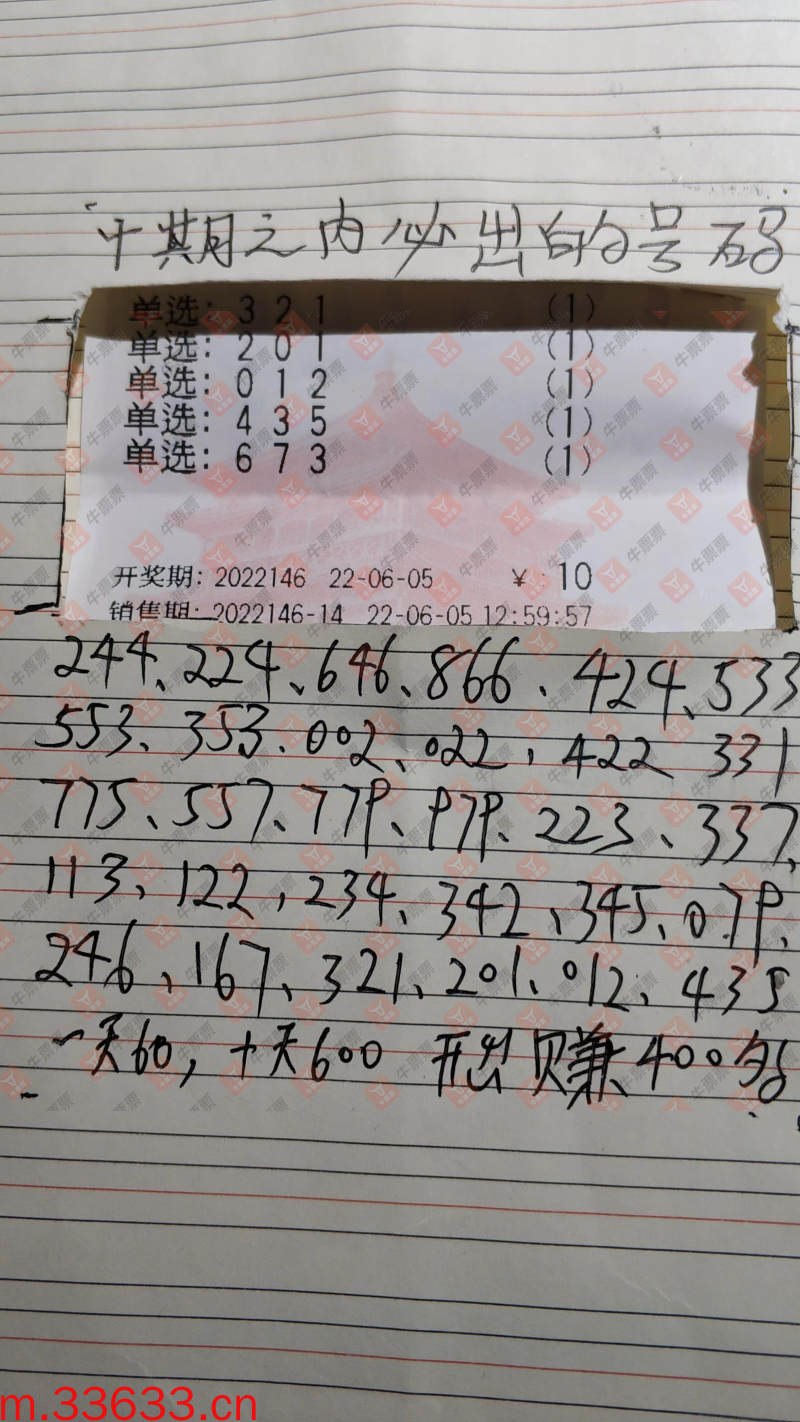 十期之内必出的号码
单选: 3 2 1 (1)
单选: 2 0 1 (1)
单选: 0 1 2 (1)
单选: 4 3 5 (1)
单选: 6 7 3 (1)
开奖期: 2022146 22-06-05 ¥ 10
销售期: 2022146-14 22-06-05 12:59:57
244、224、646、866、424、533
553、353、002、022、422 331
775、557、779、979、223、337、
113、122、234、342、345、079、
246、167、321、201、012、435
一天60,十天600 开出贝赚400多
牛票票
m.33633.cn